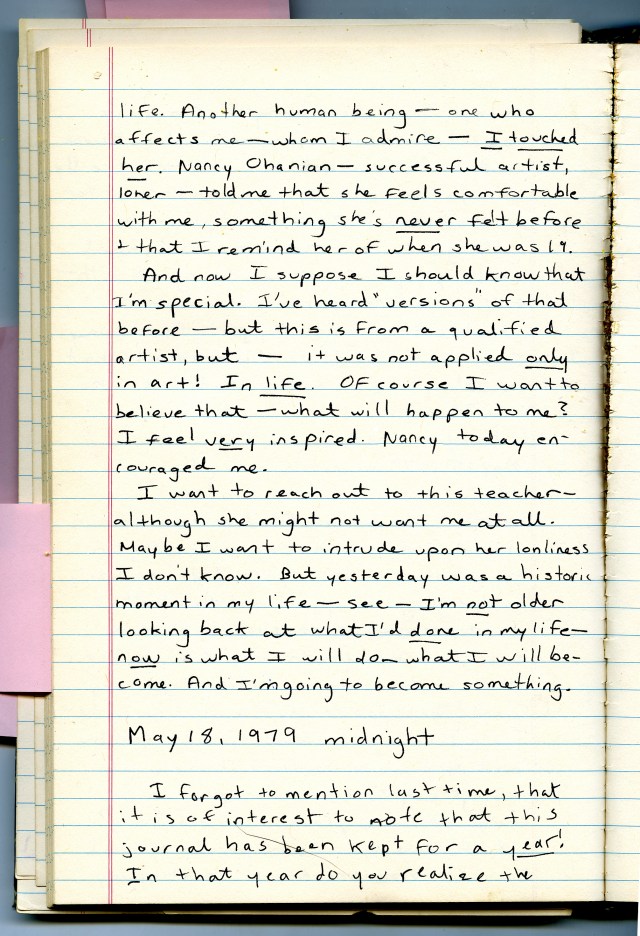 life. Another human being — one who
affects me — whom I admire — I touched
her. Nancy Ohanian — successful artist,
loner — told me that she feels comfortable
with me, something she's never felt before
& that I remind her of when she was 19.
And now I suppose I should know that
I'm special. I've heard "versions" of that
before — but this is from a qualified
artist, but — it was not applied only
in art! In life. Of course I want to
believe that — what will happen to me?
I feel very inspired. Nancy today en-
couraged me.
I want to reach out to this teacher —
although she might not want me at all.
Maybe I want to intrude upon her lonliness
I don't know. But yesterday was a historic
moment in my life — see — I'm not older
looking back at what I'd done in my life —
now is what I will do — what I will be-
come. And I'm going to become something.
May 18, 1979 midnight
I forgot to mention last time, that
it is of interest to note that this
journal has been kept for a year!
In that year do you realize the